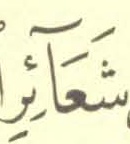 شَعَآئِرِ